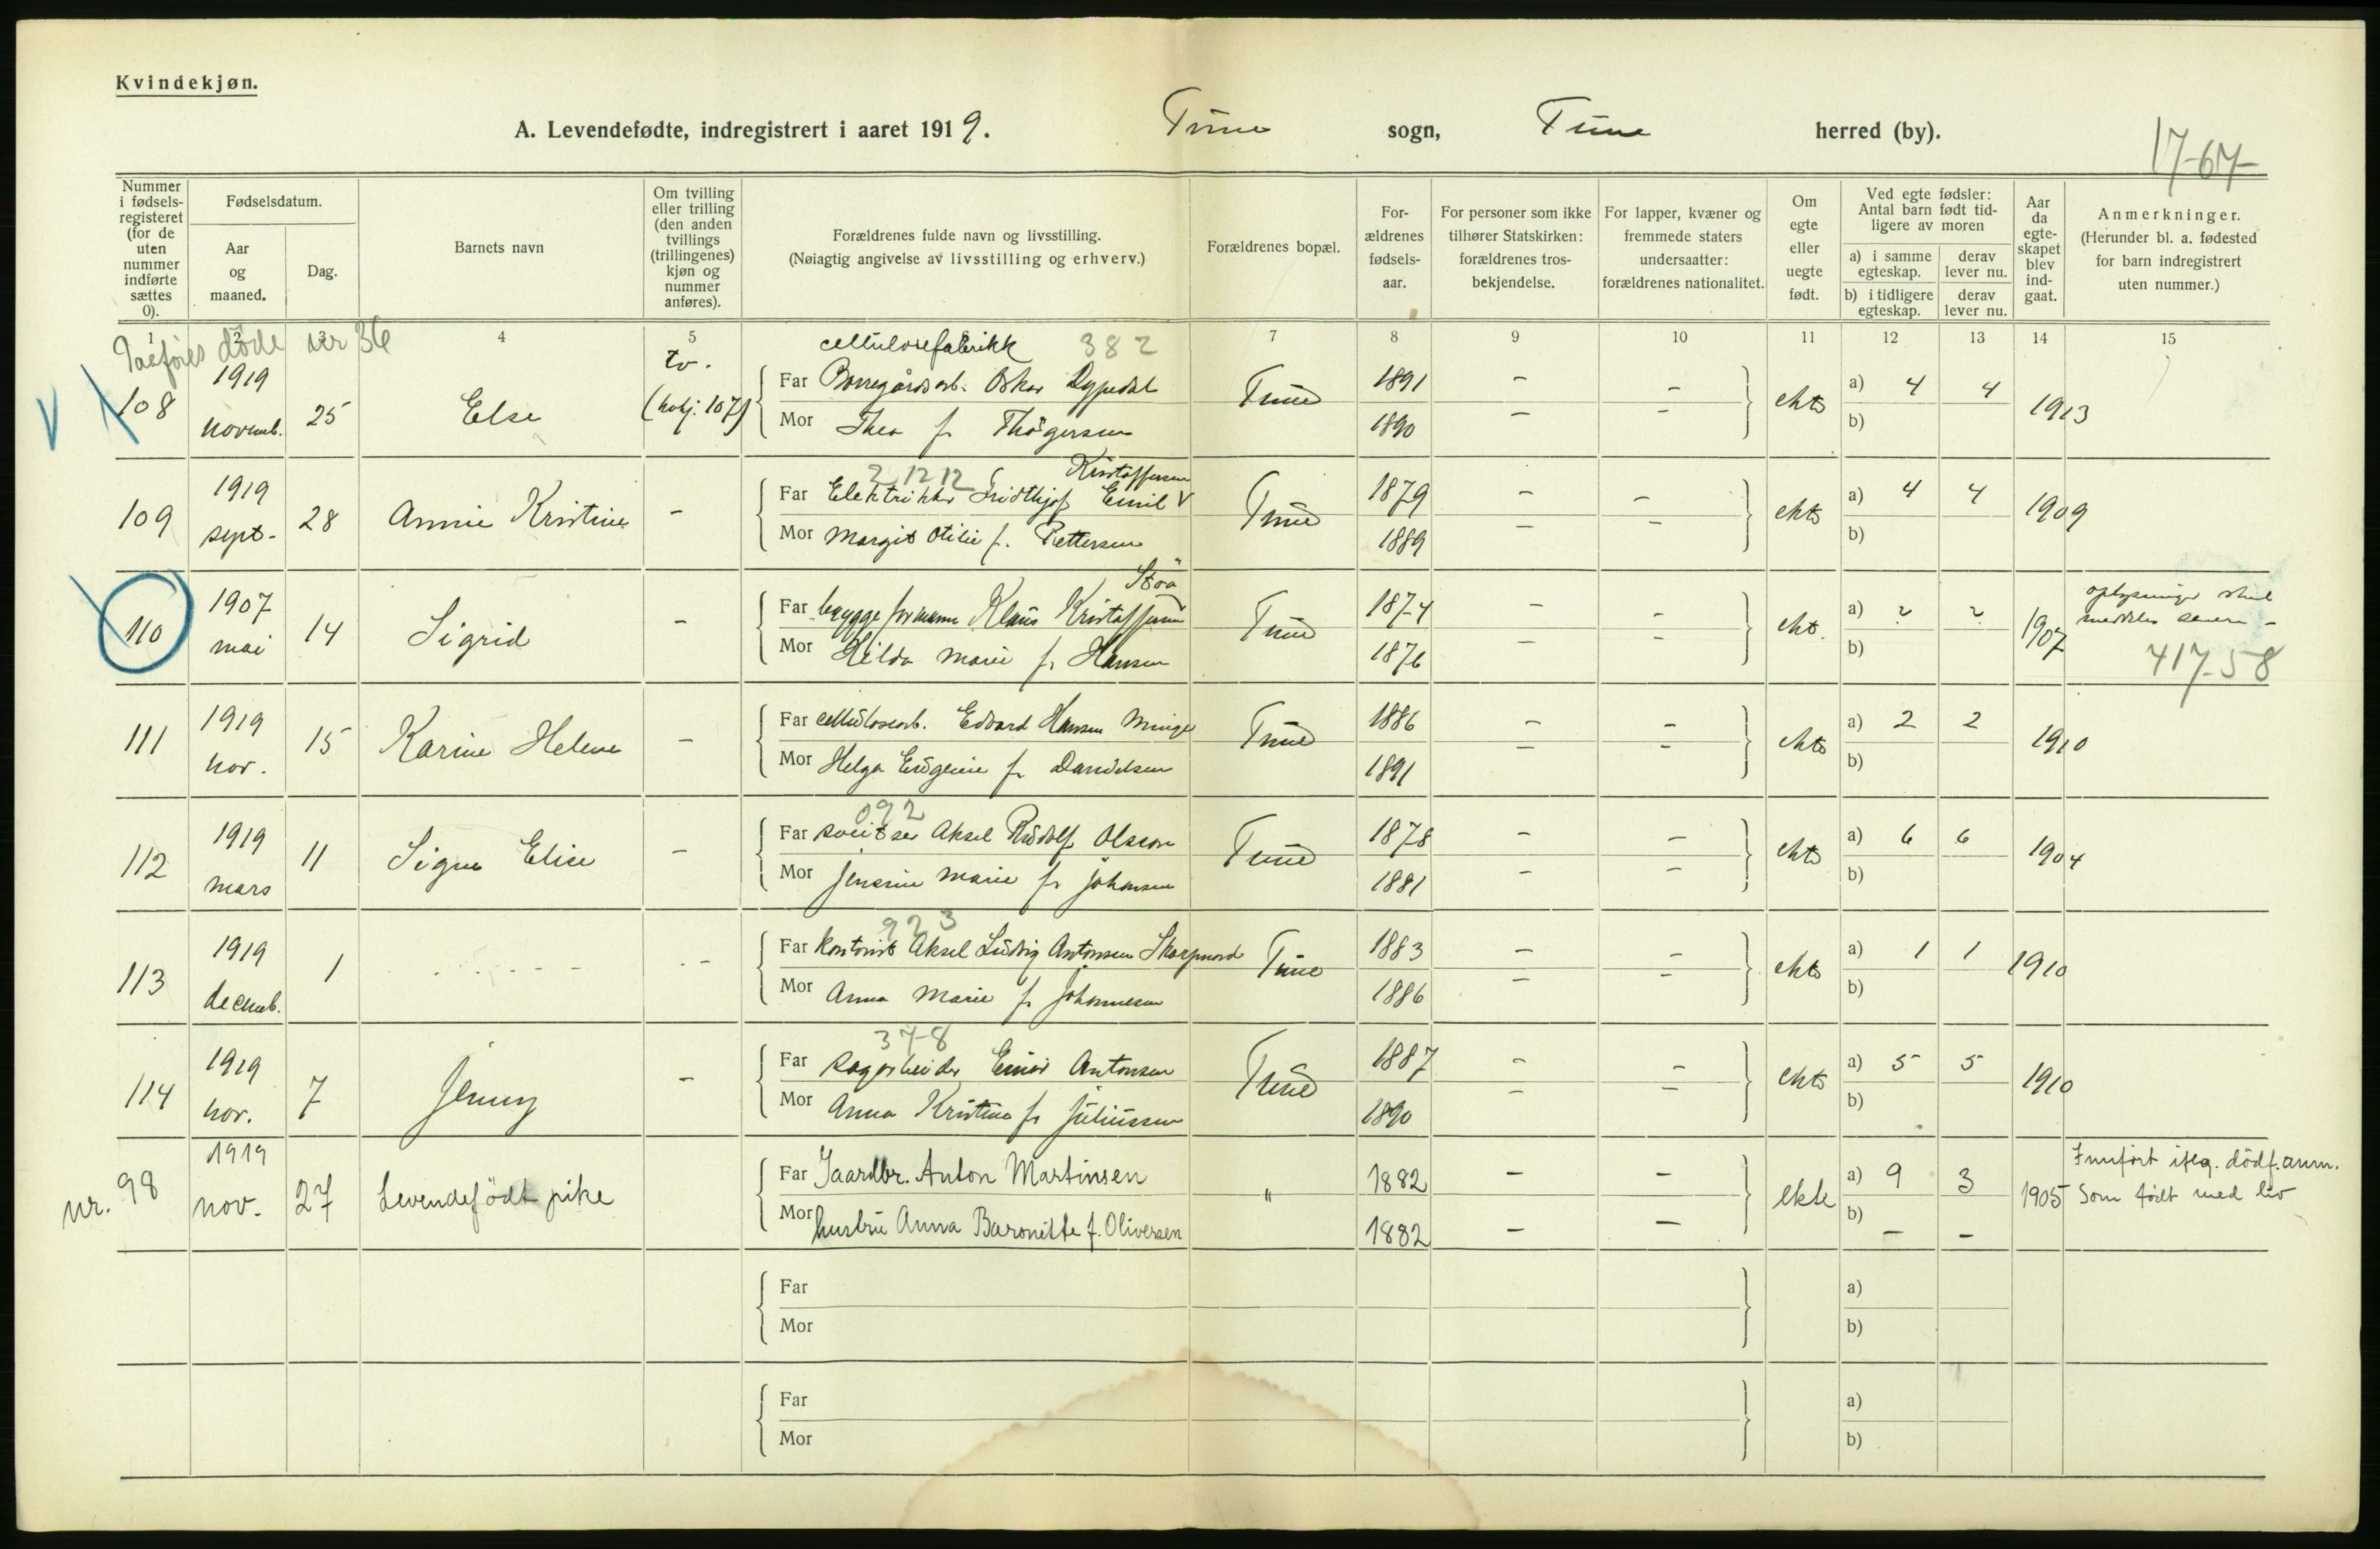 Kvindekjøn.
A. Levendefødte, indregistrert i aaret 1919. Tune sogn, Tune herred (by).
17-67-
Nummer i fødsels-registeret (for de uten nummer indførte sættes 0).
Fødselsdatum.
Aar og maaned.
Dag.
Barnets navn
Om tvilling eller trilling (den anden tvillings (trillingenes) kjøn og nummer anføres).
Forældrenes fulde navn og livsstilling.
(Nøiagtig angivelse av livsstilling og erhverv.)
Forældrenes bopæl.
For-ældrenes fødsels-aar.
For personer som ikke tilhører Statskirken: forældrenes tros-bekjendelse.
For lapper, kvæner og fremmede staters undersaatter: forældrenes nationalitet.
Om egte eller uegte født.
Ved egte fødsler: Antal barn født tid-ligere av moren
a) i samme egteskap. derav lever nu.
b) i tidligere egteskap. derav lever nu.
Aar da egte-skapet blev ind-gaat.
Anmerkninger.
(Herunder bl. a. fødested for barn indregistrert uten nummer.)
1 2 3 4 5 7 8 9 10 11 12 13 14 15
døde nr 36
cellulosefabrikk 382
108 1919 novemb. 25 Else tv. (hvkj. 107)
Far Borregårdsarb. Oskar Dypedal Tune 1891 - - ekte a) 4 4 1913
Mor Thea f. Thøgersen 1890 - - b)
21212 Kristoffersen
109 1919 sept. 28 Annie Kristine -
Far Elektriker Fridthjof Emil V Tune 1879 - - ekte a) 4 4 1909
Mor Margit Otilie f. Pettersen 1889 - - b)
110 1907 mai 14 Sigrid -
Far brygge formann Klaus Kristoffersen Tune 1874 - - ekt. a) 2 2 1907
Mor Hilda Marie f. Hansen 1876 - - b)
oplysninger skal meddeles senere -
417-58
111 1919 nov. 15 Karine Helene -
Far cellulosearb. Edvard Hansen Minge Tune 1886 - - ekte a) 2 2 1910
Mor Helga Eugenie f. Danielsen 1891 - - b)
092
112 1919 mars 11 Signe Elise -
Far sveitser Aksel Rudolf Olsson Tune 1878 - - ekte a) 6 6 1904
Mor Jensine Marie f. Johansen 1881 - - b)
923
113 1919 decemb. 1 - - - - -
Far kontorist Aksel Ludvig Antonsen Skarpnord Tune 1883 - - ekte a) 1 1 1910
Mor Anna Marie f. Johannesen 1886 - - b)
378
114 1919 nov. 7 Jenny -
Far sagarbeider Einar Antonsen Tune 1887 - - ekte a) 5 5 1910
Mor Anna Kristine f. Juliussen 1890 - - b)
nr. 98 1919 nov. 27 Levendefödt pike
Far Gaardbr. Anton Martinsen " 1882 - - ekte a) 9 3 1905
Mor hustru Anna Baronitte f. Oliversen 1882 - - b) - -
Innført iflg. dödf. anm.
Som födt med liv
Far a)
Mor b)
Far a)
Mor b)